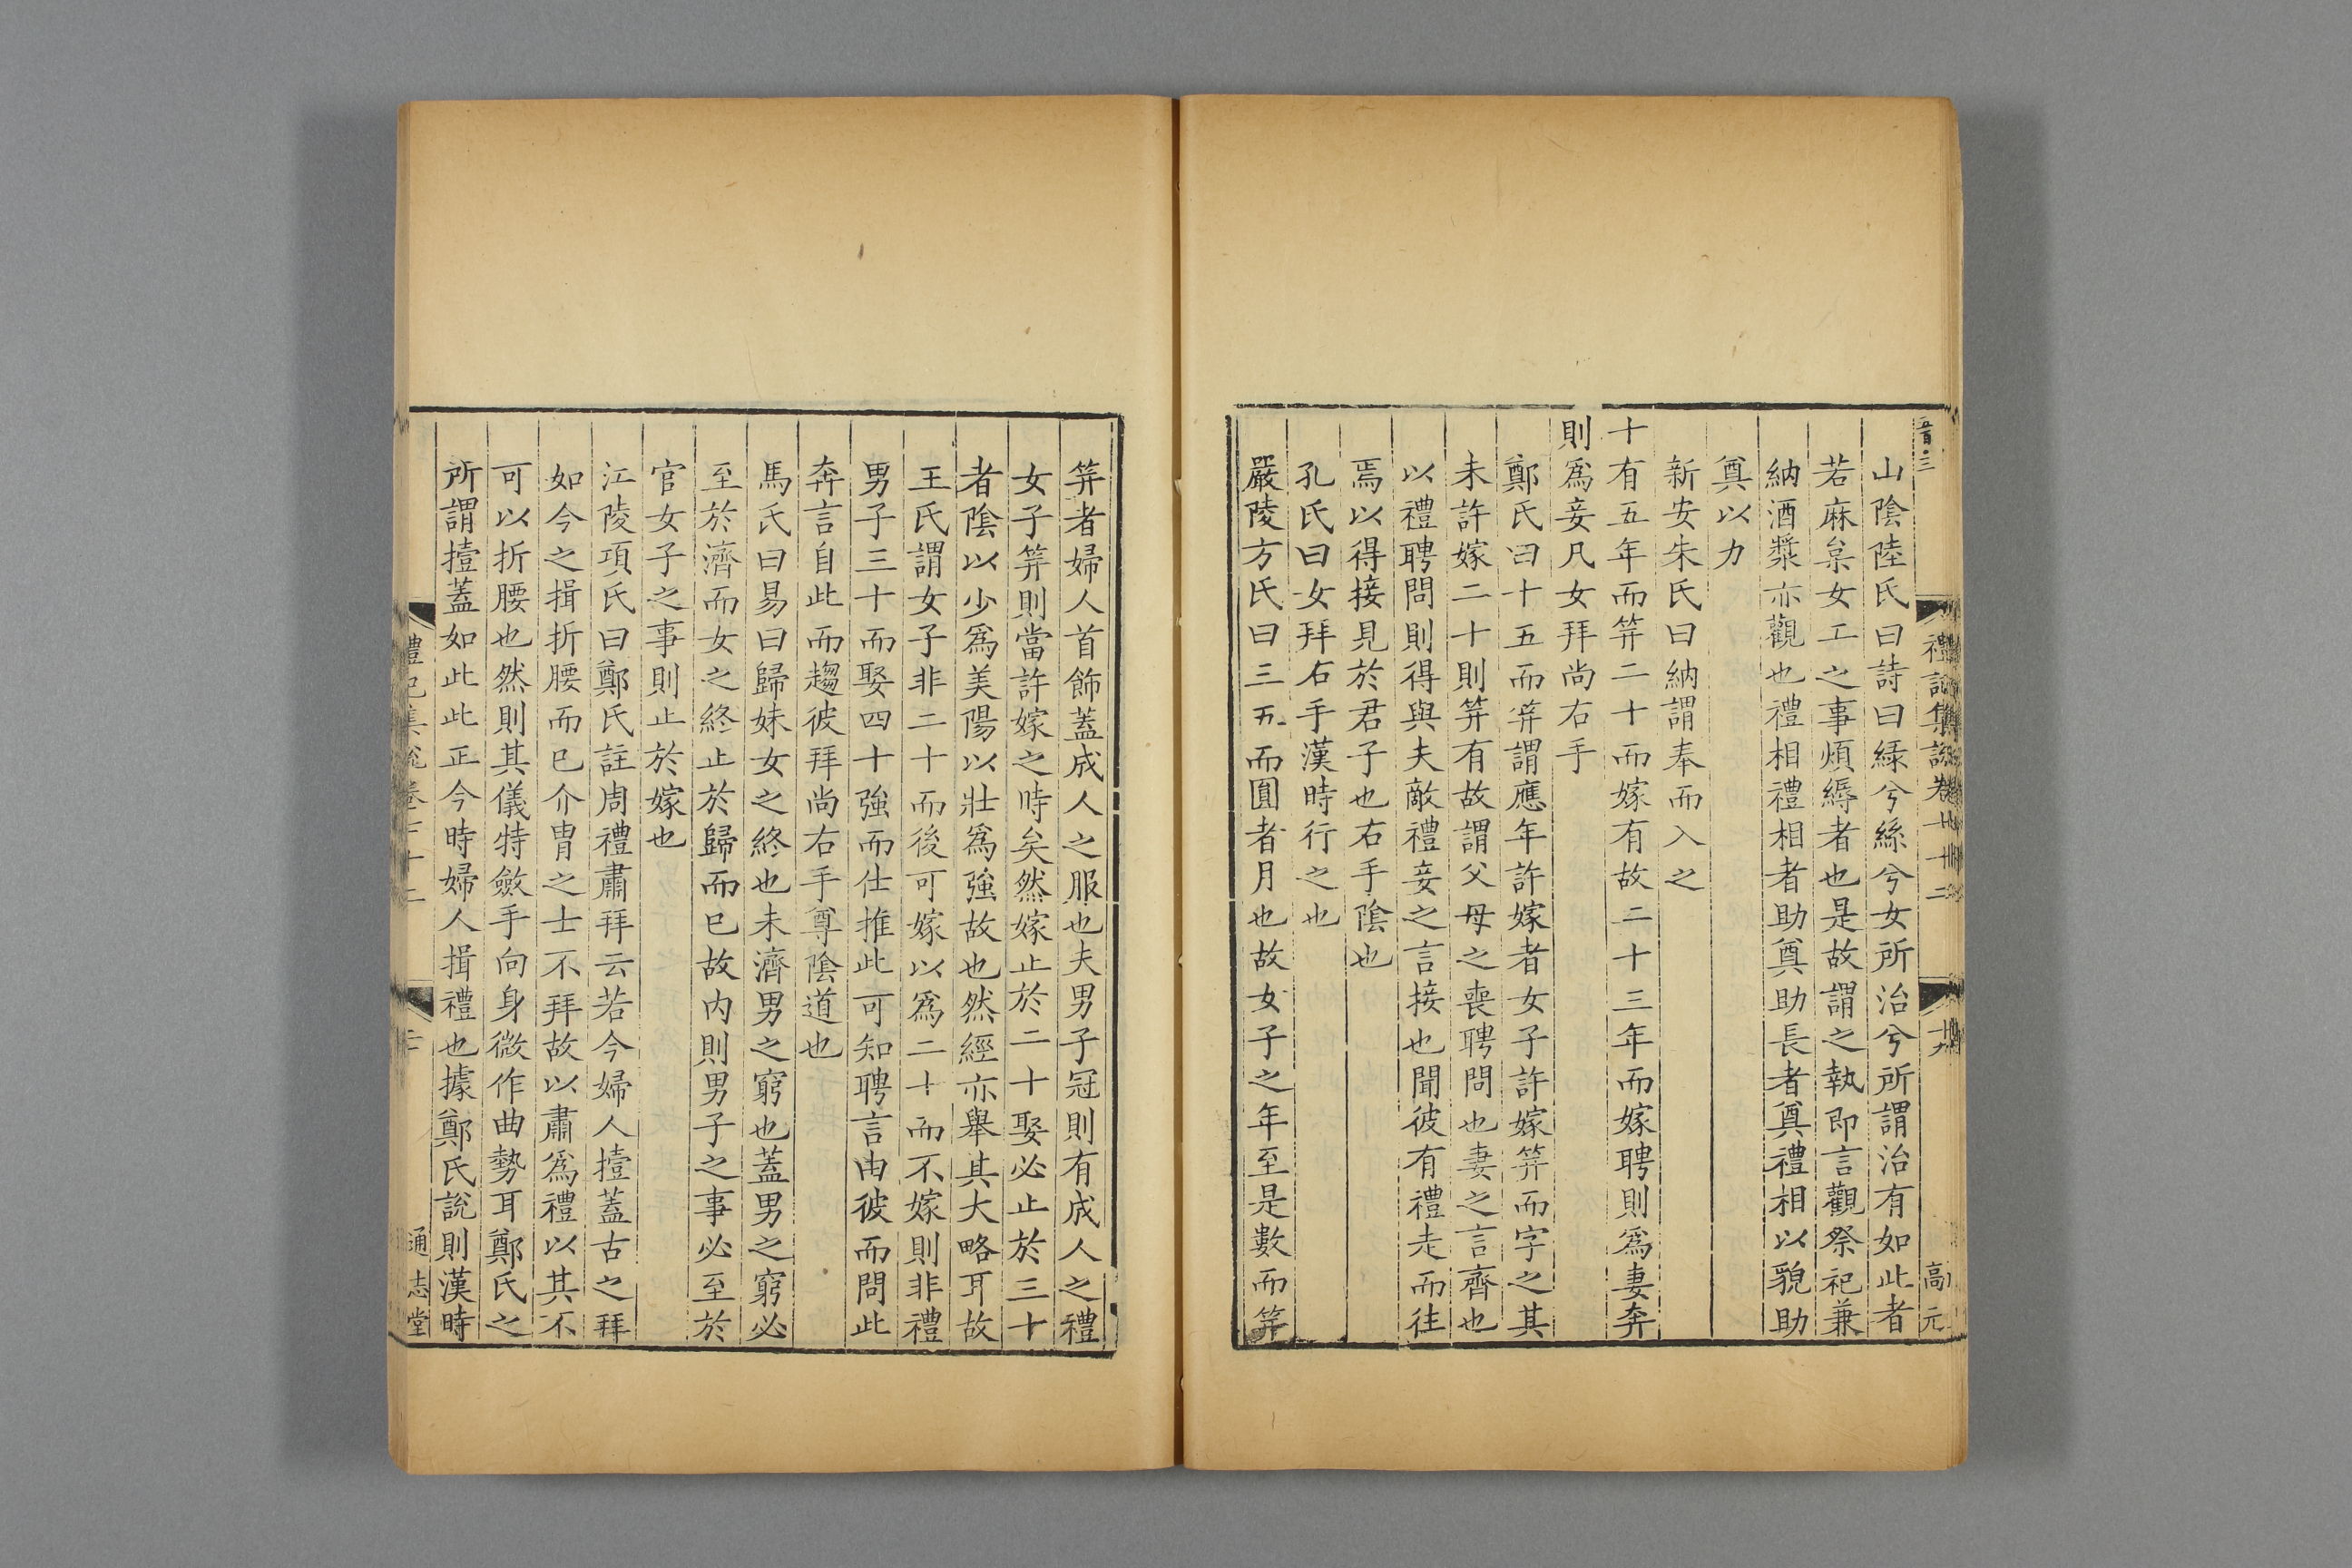 山陰陸氏曰詩曰緑兮絲兮女所治兮所謂治有如此者
若麻枲女工之事煩縟者也是故謂之執即言觀祭祀兼
納酒漿亦觀也禮相禮相者助奠助長者奠禮相以貌助
奠以力
新安朱氏曰納謂奉而入之
十有五年而笄二十而嫁有故二十三年而嫁聘則爲妻奔
則爲妾凡女拜尚右手
鄭氏曰十五而笄謂應年許嫁者女子許嫁笄而字之其
未許嫁二十則笄有故謂父母之喪聘問也妻之言齊也
以禮聘問則得與夫敵禮妾之言接也聞彼有禮走而往
焉以得接見於君子也右手陰也
孔氏曰女拜右手漢時行之也
嚴陵方氏曰三五而圓者月也故女子之年至是數而笄
高元
笄者婦人首飾蓋成人之服也夫男子冠則有成人之禮
女子笄則當許嫁之時矣然嫁止於二十娶必止於三十
者陰以少爲美陽以壯爲強故也然經亦舉其大略耳故
王氏謂女子非二十而後可嫁以爲二十而不嫁則非禮
男子三十而娶四十強而仕推此可知聘言由彼而問此
奔言自此而趨彼拜尚右手尊陰道也
馬氏曰易曰歸妹女之終也未濟男之窮也蓋男之窮必
至於濟而女之終止於歸而已故内則男子之事必至於
官女子之事則止於嫁也
江陵項氏曰鄭氏註周禮肅拜云若今婦人撎蓋古之拜
如今之揖折腰而已介胄之士不拜故以肅爲禮以其不
可以折腰也然則其儀特斂手向身微作曲勢耳鄭氏之
所謂撎蓋如此此正今時婦人揖禮也據鄭氏說則漢時
通志堂